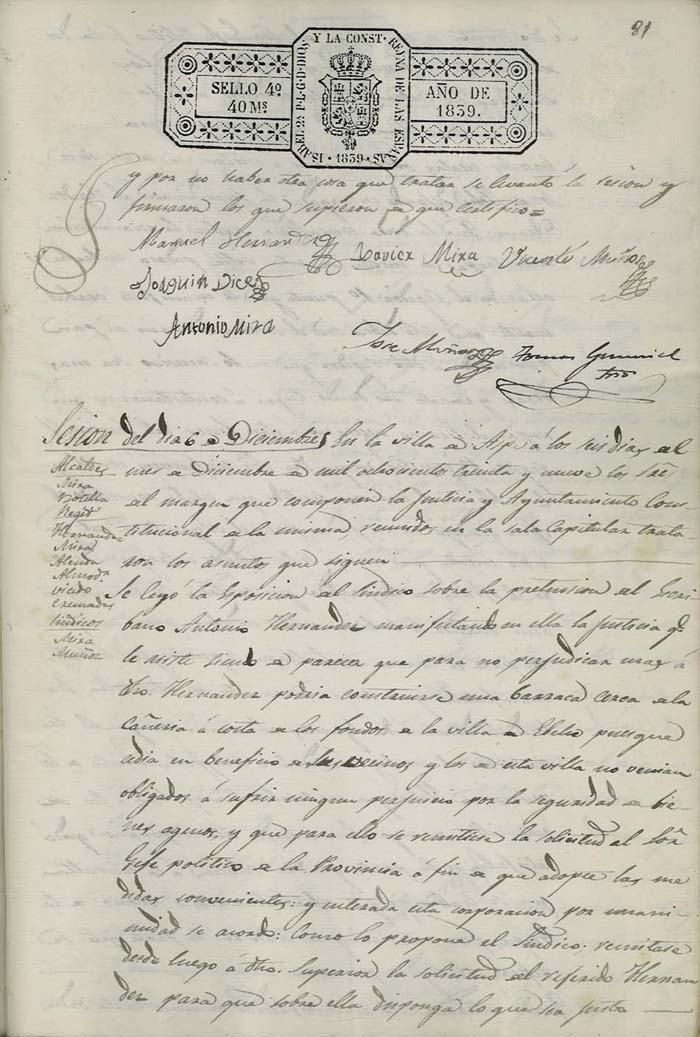 81
ISABEL 2ª P.L.G.D.DIOS Y LA CONST. REINA DE LAS ESPAÑAS
SELLO 4º
40 Ms
AÑO DE
1839.
1839
y por no haber otra cosa que tratar se levantó la sesion y
firmaron los que supieron de que certifico=
Manuel Hernandez Xavier Mira Vicente Muñoz
Joaquin Dicer
Antonio Mira
Jose Muñoz Tomas
Srio
Sesion del dia 6 de Diciembre En la villa de Aspe á los seis dias del
mes de Diciembre de mil ochocientos treinta y nueve los Sres
al margen que componen la Justicia y Ayuntamiento Cons-
titucional de la misma, reunidos en la sala Capitular trata-
ron los asuntos que siguen
Alcaldes
Mira
Botella
Regid.
Hernandez
Mira
Alenda
Almod.
viedo
Cremades
Sindicos
Mira
Muñoz
Se leyó la Esposicion del Sindico sobre la pretension del Escri-
bano Antonio Hernandez manifestando en ella la Justicia q.
le asiste siendo de parecer que para no perjudicar mas á
dho. Hernandez podria construirse una barraca cerca de la
cañeria á costa de los fondos de la villa de Elche puesque
cedia en beneficio de sus vecinos y los de esta villa no venian
obligados á sufrir ningun perjuicio por la seguridad de bie-
nes agenos, y que para ello se remitiese la solicitud al Sõr
Gefe politico de la Provincia á fin de que adopte las me
didas convenientes: y enterada esta corporacion por unani-
midad se acordó: Como lo propone el Sindico; remitase
desde luego á dho. Superior la solicitud del referido Hernan
dez para que sobre ella disponga lo que sea justo